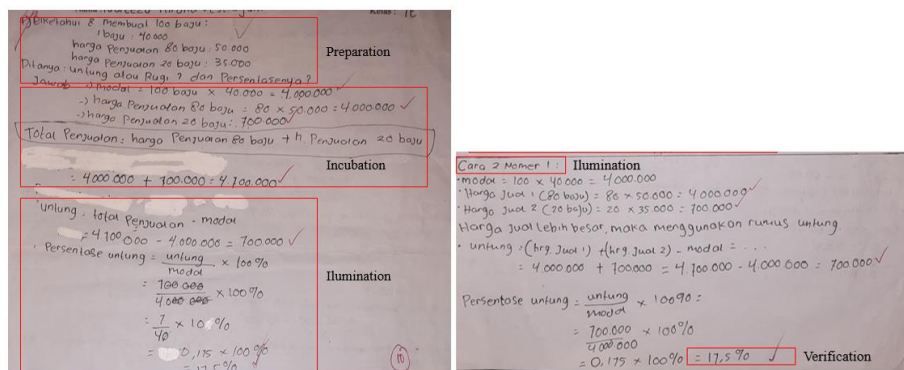 Kelas: 7E
Diketahui 8 membuat 100 baju:
1 baju: 40.000
harga Penjualan 80 baju: 50.000
harga Penjualan 20 baju: 35.000
Preparation
Ditanya: untung atau Rugi ? dan Persentasenya?
Jawab -) modal = 100 baju x 40.000 = 4.000.000
-) harga Penjualan 80 baju = 80 x 50.000 = 4.000.000
-) harga Penjualan 20 baju: 700.000
Total Penjualan: harga Penjualan 80 baju + h Penjualan 20 baju
Incubation
= 4000 000 + 700.000 = 4.700.000
untung: total Penjualan - modal
= 4 700.000 - 4.000.000 = 700.000
Persentase untung = untung x 100 %
modal
= 700 000 x 100 %
4000 000
Ilumination
= 7 x 100 %
40
= 0,175 x 100 %
= 17,5 %
10
Cara 2 Nomer 1: Ilumination
modal = 100 x 40.000 = 4000.000
Harga Jual 1 (80 baju) = 80 x 50.000 = 4.000.000
Hargo Jual 2 (20 baju) = 20 x 35.000 = 700.000
Harga Jual lebih besar, maka menggunakan rumus untung.
untung = (hrg Jual 1) + (hrg Jual 2) - modal = ...
= 4.000.000 + 700.000 = 4.700.000 - 4.000.000 = 700.000
Persentase untung = untung x 100% =
modal
= 700.000 x 100 %
4000.000
= 0,175 x 100% = 17,5 % Verification